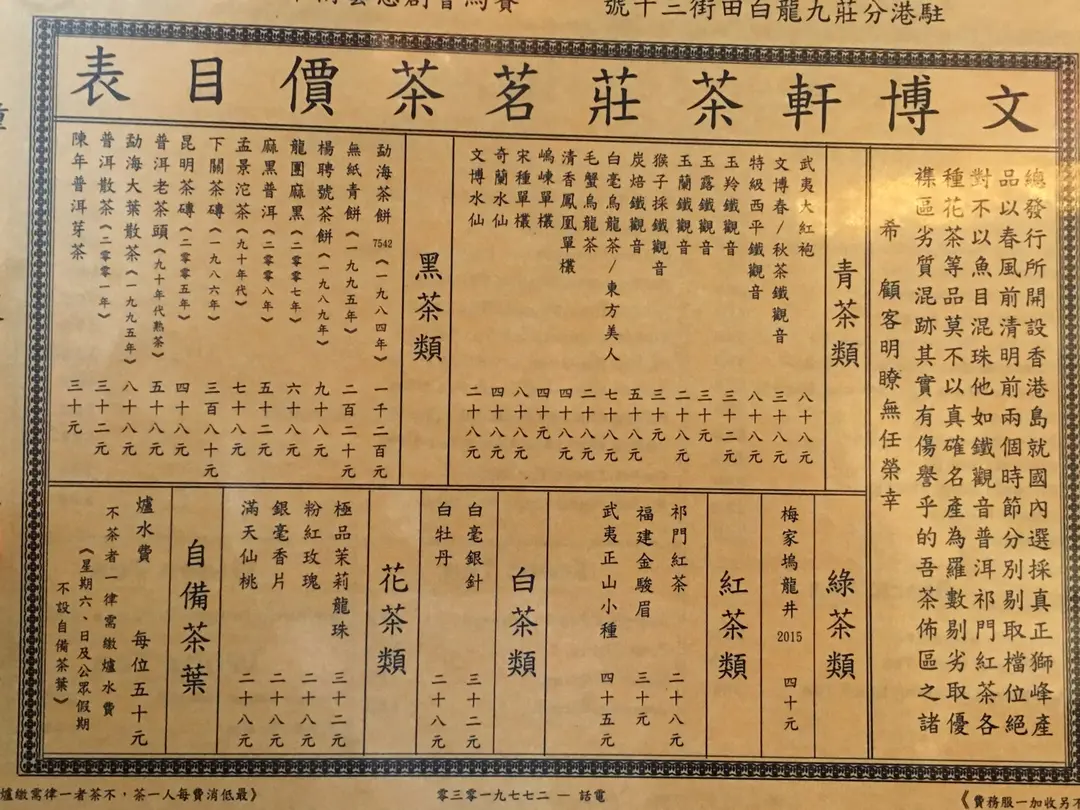 駐港分莊九龍白田街三十號
文博軒茶莊茗茶價目表
總發行所開設香港島就國內選採真正獅峰產
品以春風前清明前兩個時節分別剔取檔位絕
對不以魚目混珠他如鐵觀音普洱祁門紅茶各
種花茶等品莫不以真確名產為羅數剔劣取優
襍區劣質混跡其實有傷譽乎的吾茶佈區之諸
希 顧客明瞭無任榮幸
青茶類
武夷大紅袍 八十八元
文博春/秋茶鐵觀音 三十八元
特級西平鐵觀音 八十八元
玉羚鐵觀音 三十二元
玉露鐵觀音 三十元
玉蘭鐵觀音 二十八元
猴子採鐵觀音 三十元
炭焙鐵觀音 五十八元
白毫烏龍茶/東方美人 七十八元
毛蟹烏龍茶 二十八元
清香鳳凰單欉 四十八元
嶋崠單欉 四十元
宋種單欉 八十八元
奇蘭水仙 四十八元
文博水仙 二十八元
黑茶類
勐海茶餅7542《一九八四年》 一千二百元
無紙青餅《一九九五年》 二百二十元
楊聘號茶餅《一九八九年》 九十八元
龍團麻黑《二零零七年》 六十八元
麻黑普洱《二零零八年》 五十二元
孟景沱茶《九十年代》 七十八元
下關茶磚《一九八六年》 三百八十元
昆明茶磚《二零零五年》 四十八元
普洱老茶頭《九十年代熟茶》 五十八元
勐海大葉散茶《一九九五年》 八十八元
普洱散茶《二零零一年》 三十二元
陳年普洱芽茶 三十元
綠茶類
梅家塢龍井2015 四十元
紅茶類
祁門紅茶 二十八元
福建金駿眉 三十元
武夷正山小種 四十五元
白茶類
白毫銀針 三十二元
白牡丹 二十八元
花茶類
極品茉莉龍珠 三十二元
粉紅玫瑰 二十八元
銀毫香片 二十八元
滿天仙桃 二十八元
自備茶葉
爐水費 每位五十元
不茶者一律需繳爐水費
《星期六、日及公眾假期
不設自備茶葉》
另收加一服務費》
電話 — 二七七九一〇三零
《最低消費每人一茶，不茶者一律需繳爐